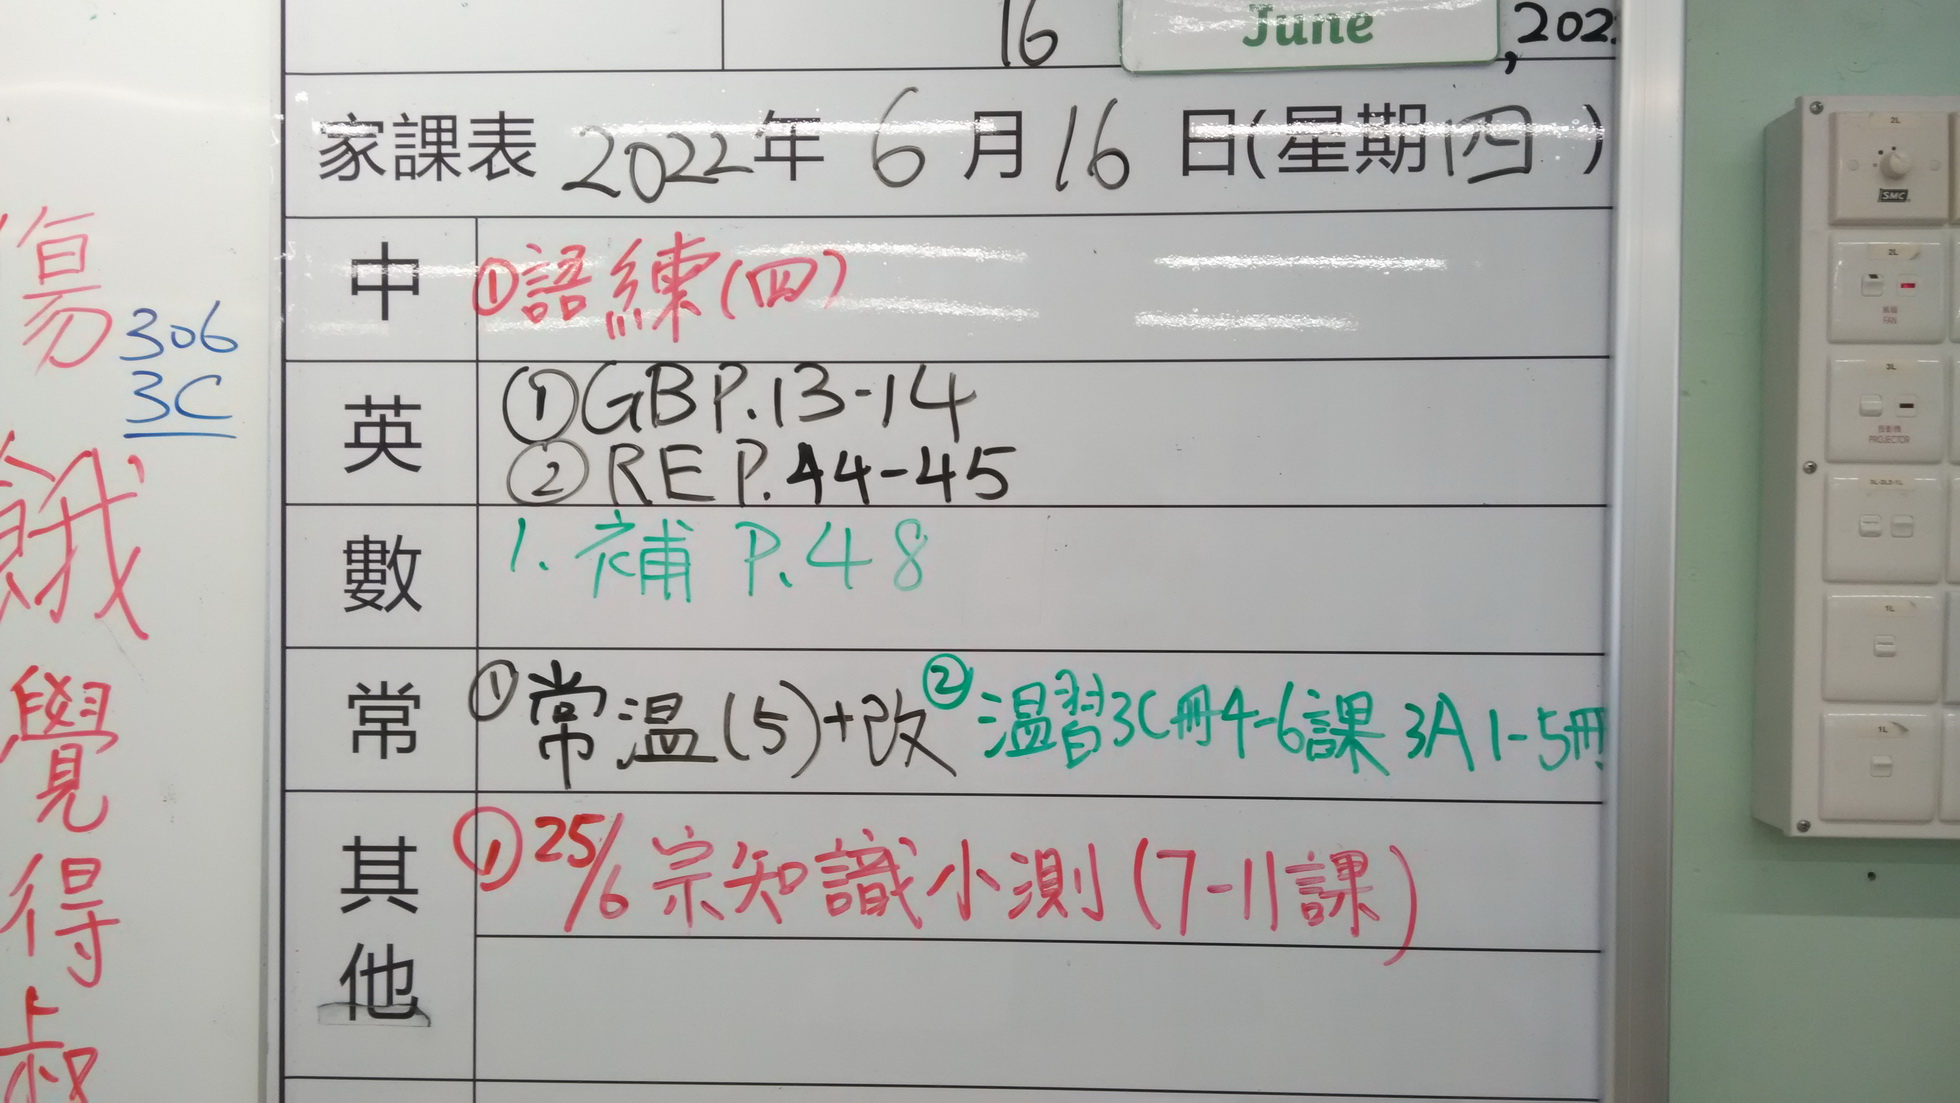 16 June, 202
家課表 2022年 6月16日(星期四)
中 ①語練(四)
英 ①GB P.13-14
②RE P.44-45
數 1. 補 P.48
常 ①常溫(5)+改 ②溫習3C冊4-6課 3A 1-5冊
其他 ①25/6 宗知識小測(7-11課)
傷
306
3C
餓
覺
得
叔
2L
SMC
2L
風扇
FAN
3L
投影機
PROJECTOR
1L
1L